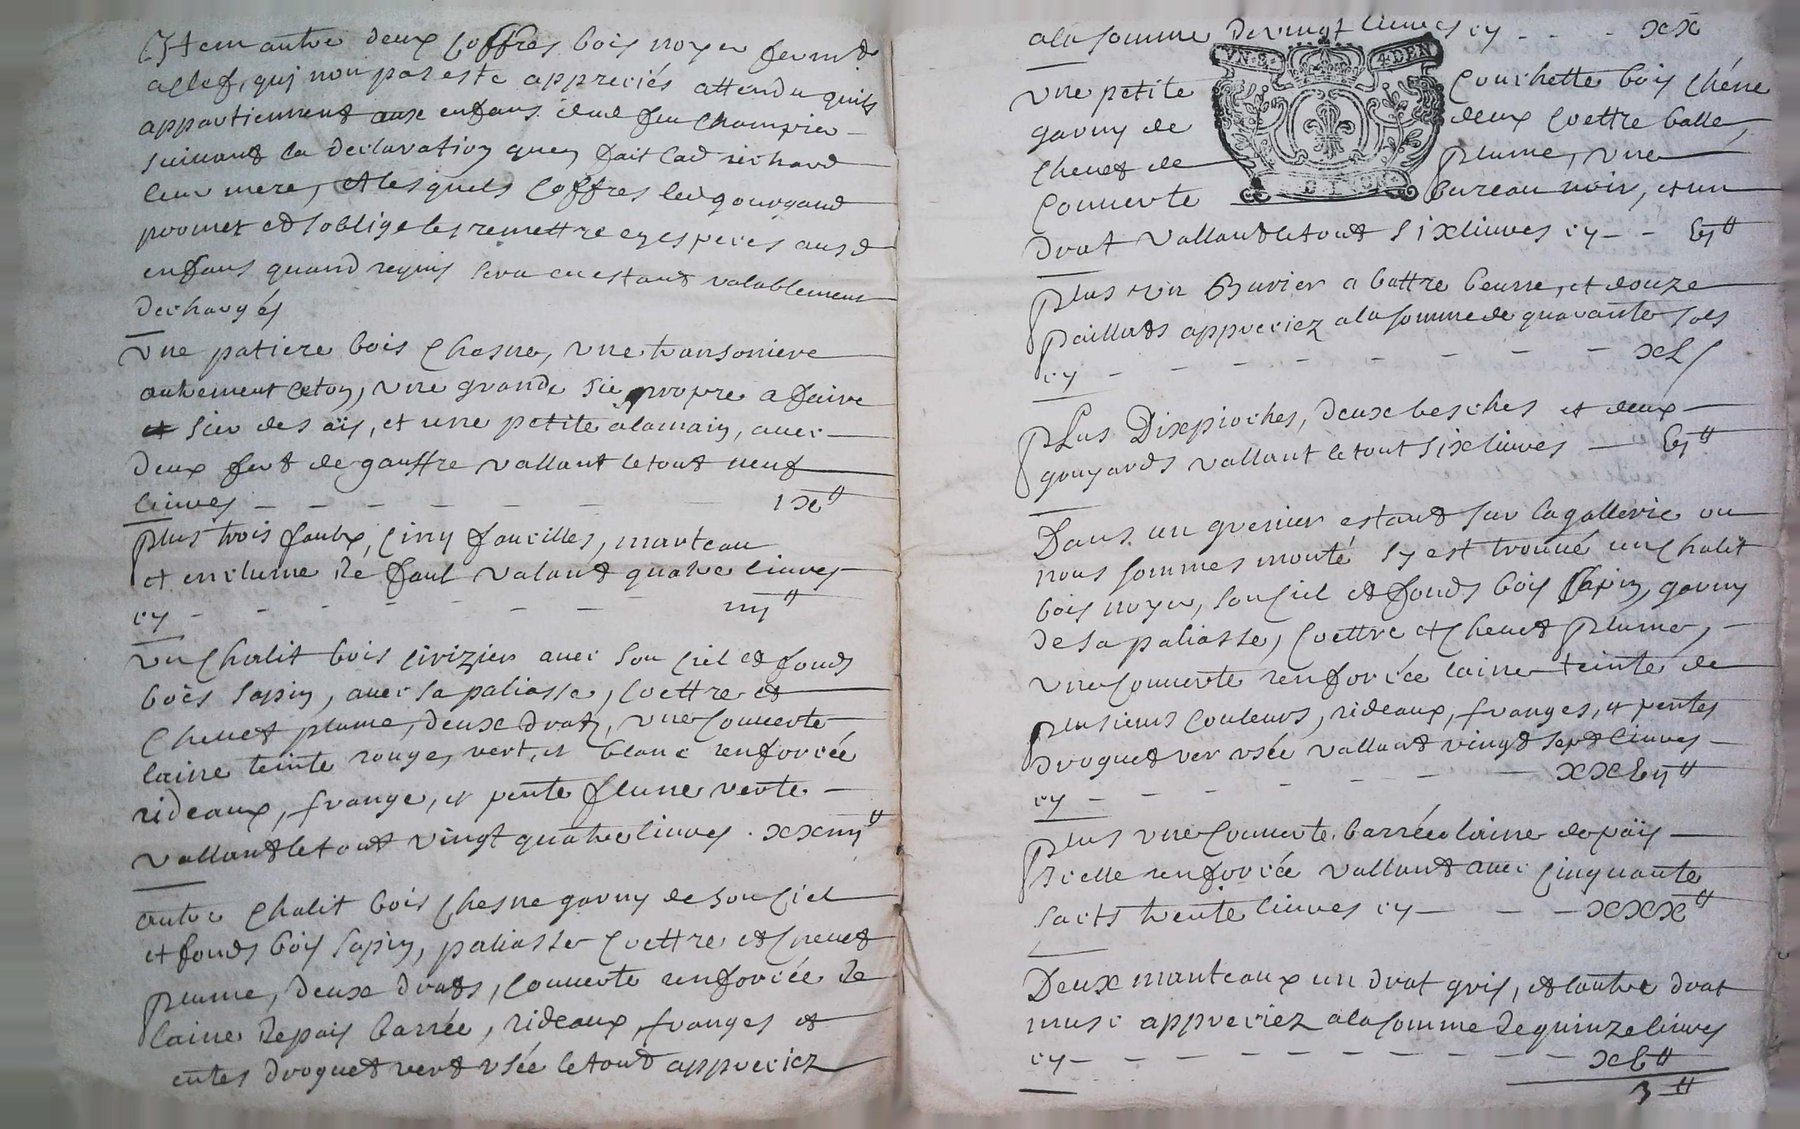 Item autre deux coffres bois noyer fermt
a clef, qui non pas esté appreciés attendu quils
appartiennent aux enfans dud feu Champier
suivant la declaration quen fait lad richard
leur mere, et lesquels coffres led gourgaud
promet et soblige les remettre en especes ausd
enfans quand requis sera en estant valablement
dechargés
Une patiere bois chesne, une transoniere
autrement leton, une grande sie propre a faire
sier des aÿs, et une petite a la main, avec
deux fert de gauffre vallant le tout neuf
livres - - - - - - ix ᵗᵗ
plus trois faulx, cinq faucilles, marteau
et enclume de faul valant quatre livres
cy - - - - - - - iiij ᵗᵗ
Un chalit bois cirizier avec son ciel et fonds
bois sapin, avec sa paliasse, coettre et
chevet plume, deux drats, une couverte
laine teinte rouge, vert, et blanc renforcée
rideaux, frange, et pente fleune verte
vallant le tout vingt quatre livres . xxiiij ᵗᵗ
autre chalit bois chesne garny de son ciel
et fonds bois sapin, paliasse coettre et chevet
plume, deux drats, couverte renforcée de
laine de pais barrée, rideaux, franges et
entes droguet vert usée le tout appreciez
a la somme de vingt livres cy - - - xx
VN·S· 4·DEN
Une petite couchette bois chéne
garny de deux coettre balles,
chevet de plume, une
couverte bureau noir, et un
drat vallant le tout six livres cy - - vj ᵗᵗ
plus un Burier a battre beurre, et douze
paillats appreciez a la somme de quarante sols
cy - - - - - - - xL s
plus Dix pioches, deux besches et deux
gouyards vallant le tout six livres - vj ᵗᵗ
Dans un grenier estant sur la gallerie ou
nous sommes monté sy est trouvé un chalit
bois noyer, son ciel et fonds bois sapin, garny
de sa paliasse, coettre et chevet plume,
une couverte renforcée laine teinte de
plusieurs couleurs, rideaux, franges, et pentes
droguet ver usée vallant vingt sept livres
cy - - - - - - xxvij ᵗᵗ
plus une couverte barrée laine de païs
icelle renforcée vallant avec cinquante
sacts trente livres cy - - - xxx ᵗᵗ
Deux manteaux un drat gris, et lautre drat
musc appreciez a la somme de quinze livres
cy - - - - - - - - xv ᵗᵗ